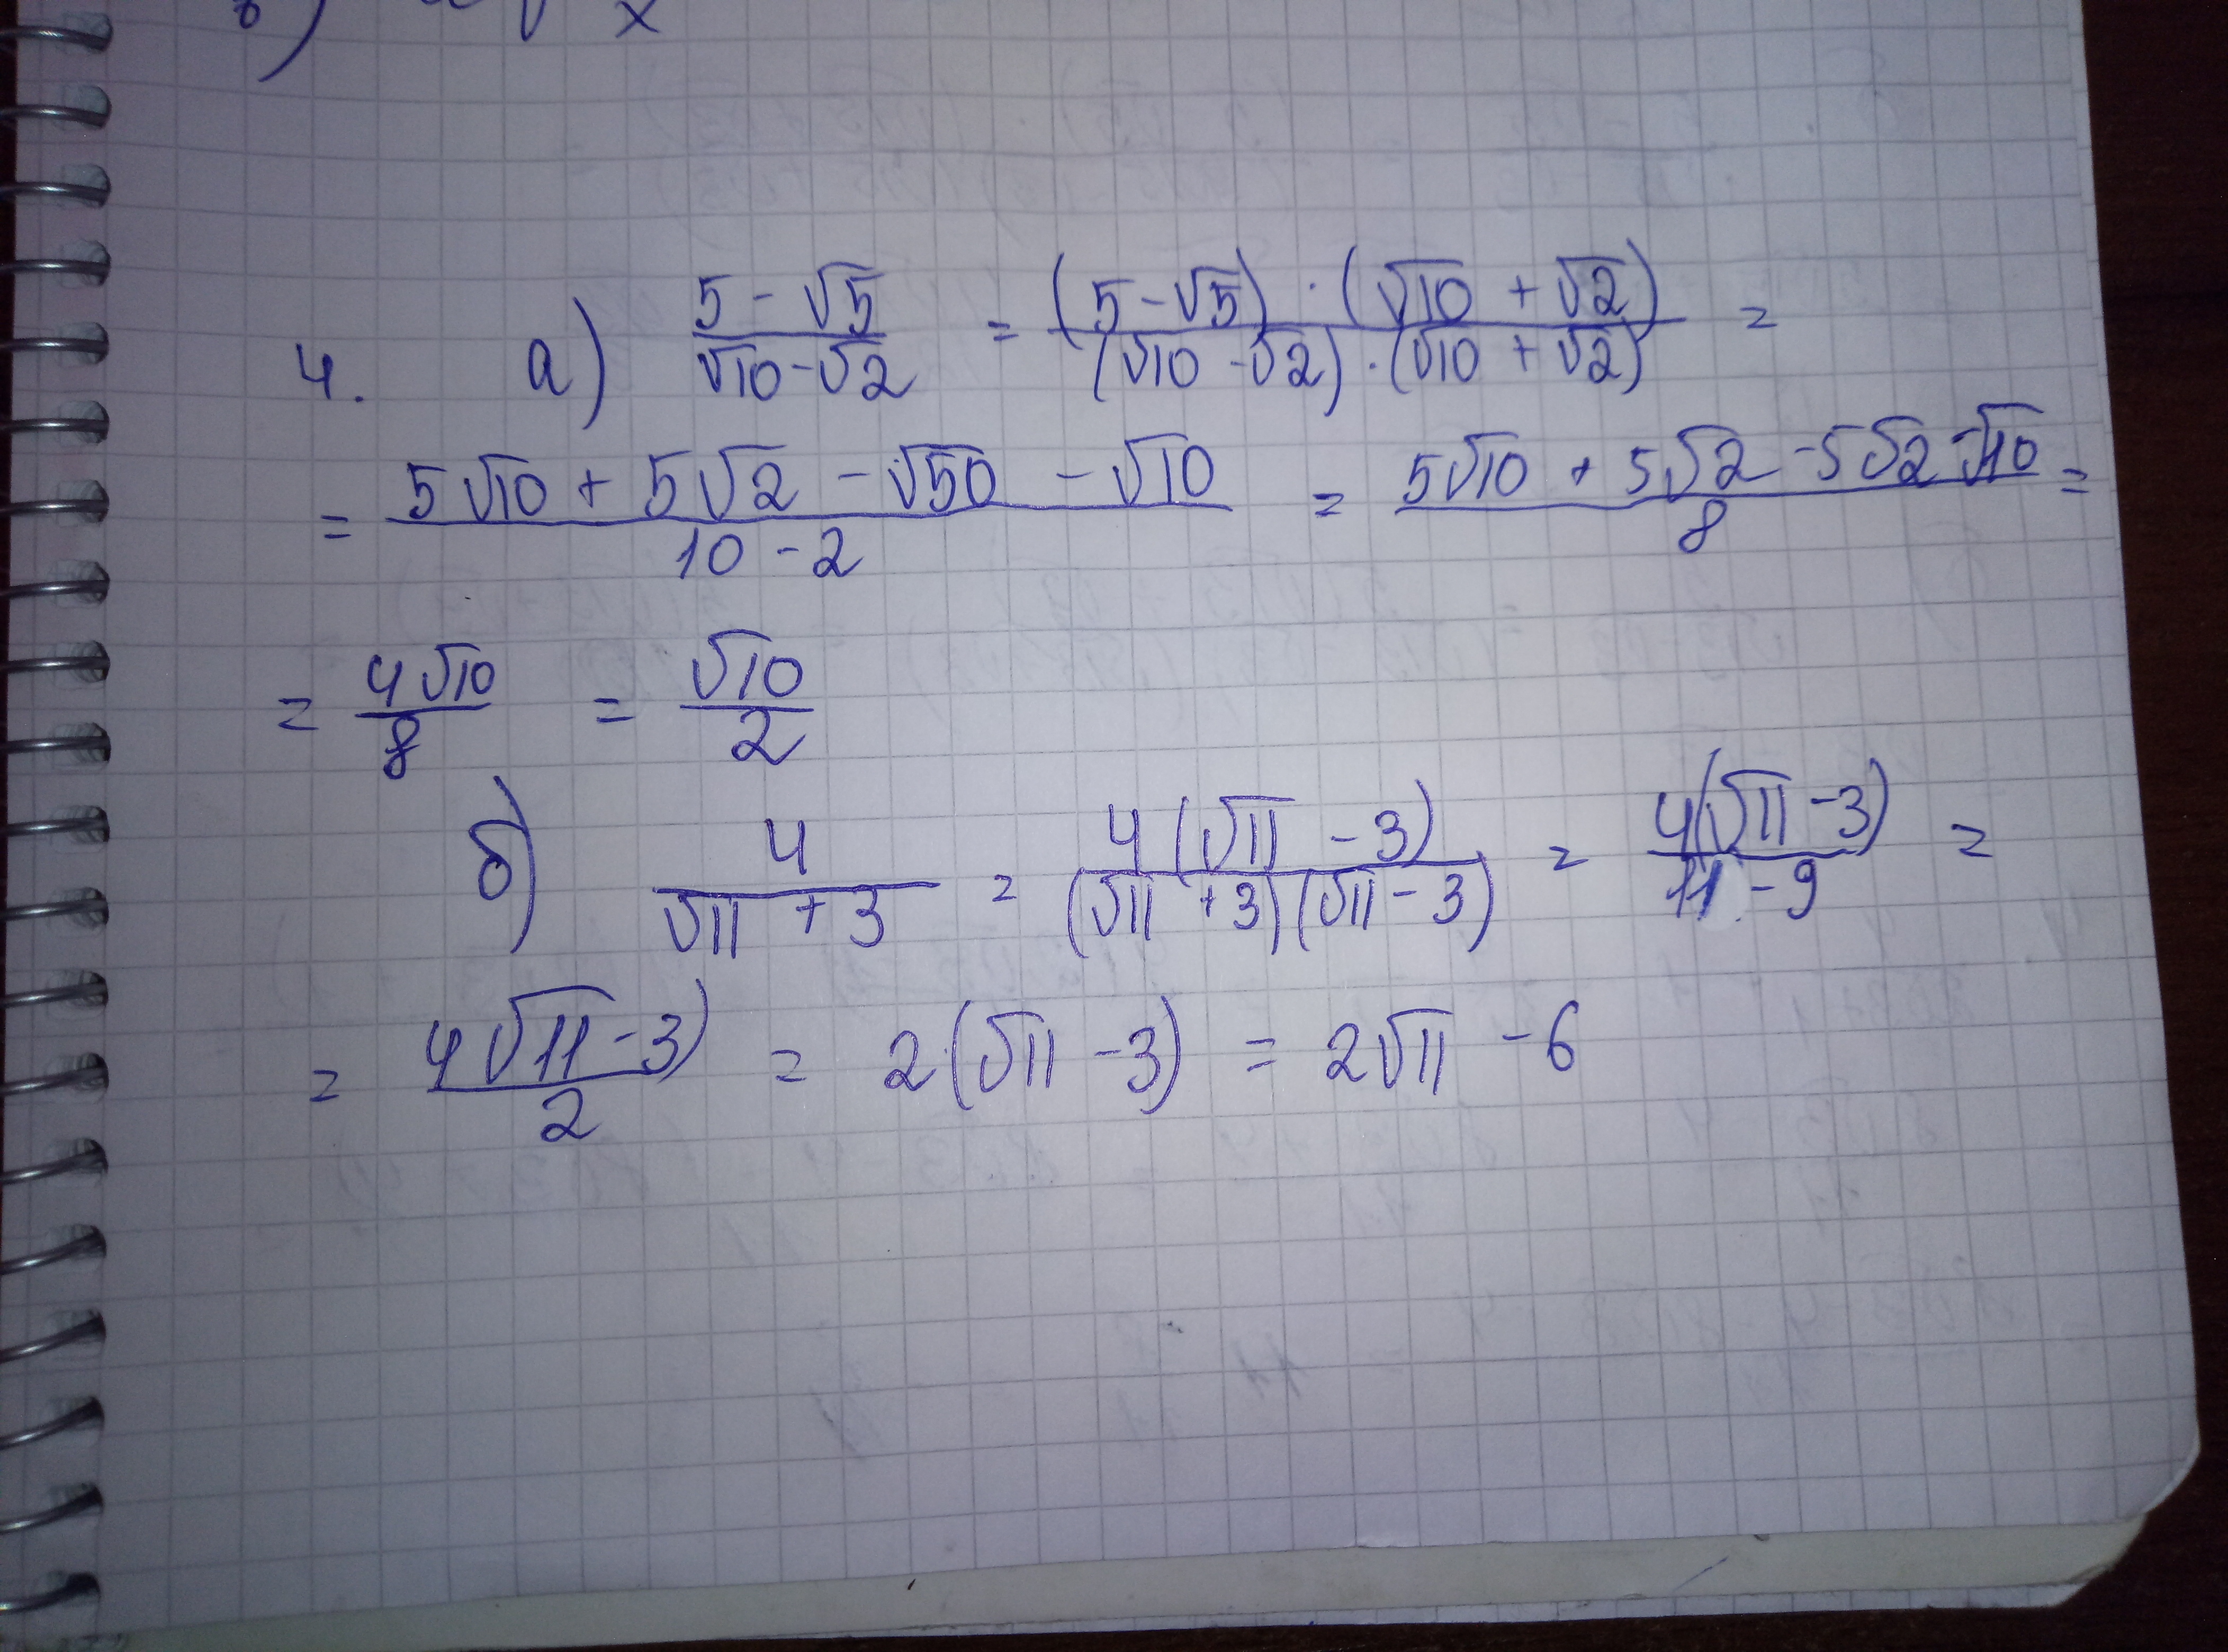 4. а) (5 - √5)/(√10 - √2) = ((5 - √5) · (√10 + √2))/((√10 - √2) · (√10 + √2)) =
= (5√10 + 5√2 - √50 - √10)/(10 - 2) = (5√10 + 5√2 - 5√2 - √10)/8 =
= 4√10/8 = √10/2
б) 4/(√11 + 3) = 4(√11 - 3)/((√11 + 3)(√11 - 3)) = 4(√11 - 3)/(11 - 9) =
= 4√11 - 3)/2 = 2(√11 - 3) = 2√11 - 6